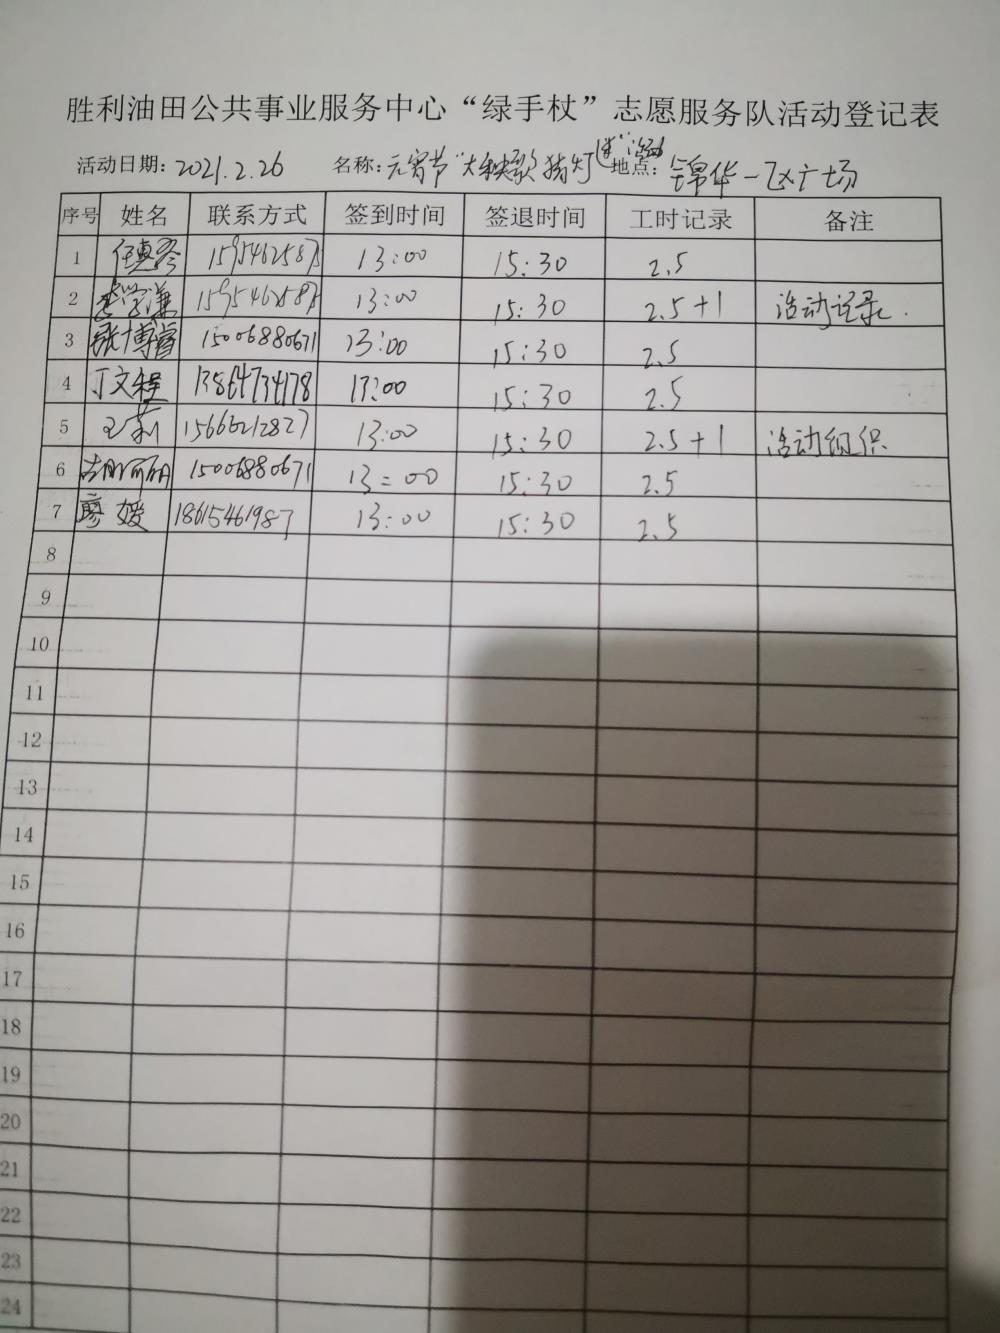 胜利油田公共事业服务中心“绿手杖”志愿服务队活动登记表
活动日期：2021.2.26 名称：元宵节“大秧歌猜灯谜”活动 地点：锦华一区广场
序号 姓名 联系方式 签到时间 签退时间 工时记录 备注
1 任惠琴 13:00 15:30 2.5
2 13:00 15:30 2.5+1 活动记录.
3 张博睿 15006880671 13:00 15:30 2.5
4 丁文程 13864734178 13:00 15:30 2.5
5 王莉 15666212827 13:00 15:30 2.5+1 活动组织
6 15006880671 13:00 15:30 2.5
7 廖媛 18615461987 13:00 15:30 2.5
8
9
10
11
12
13
14
15
16
17
18
19
20
21
22
23
24